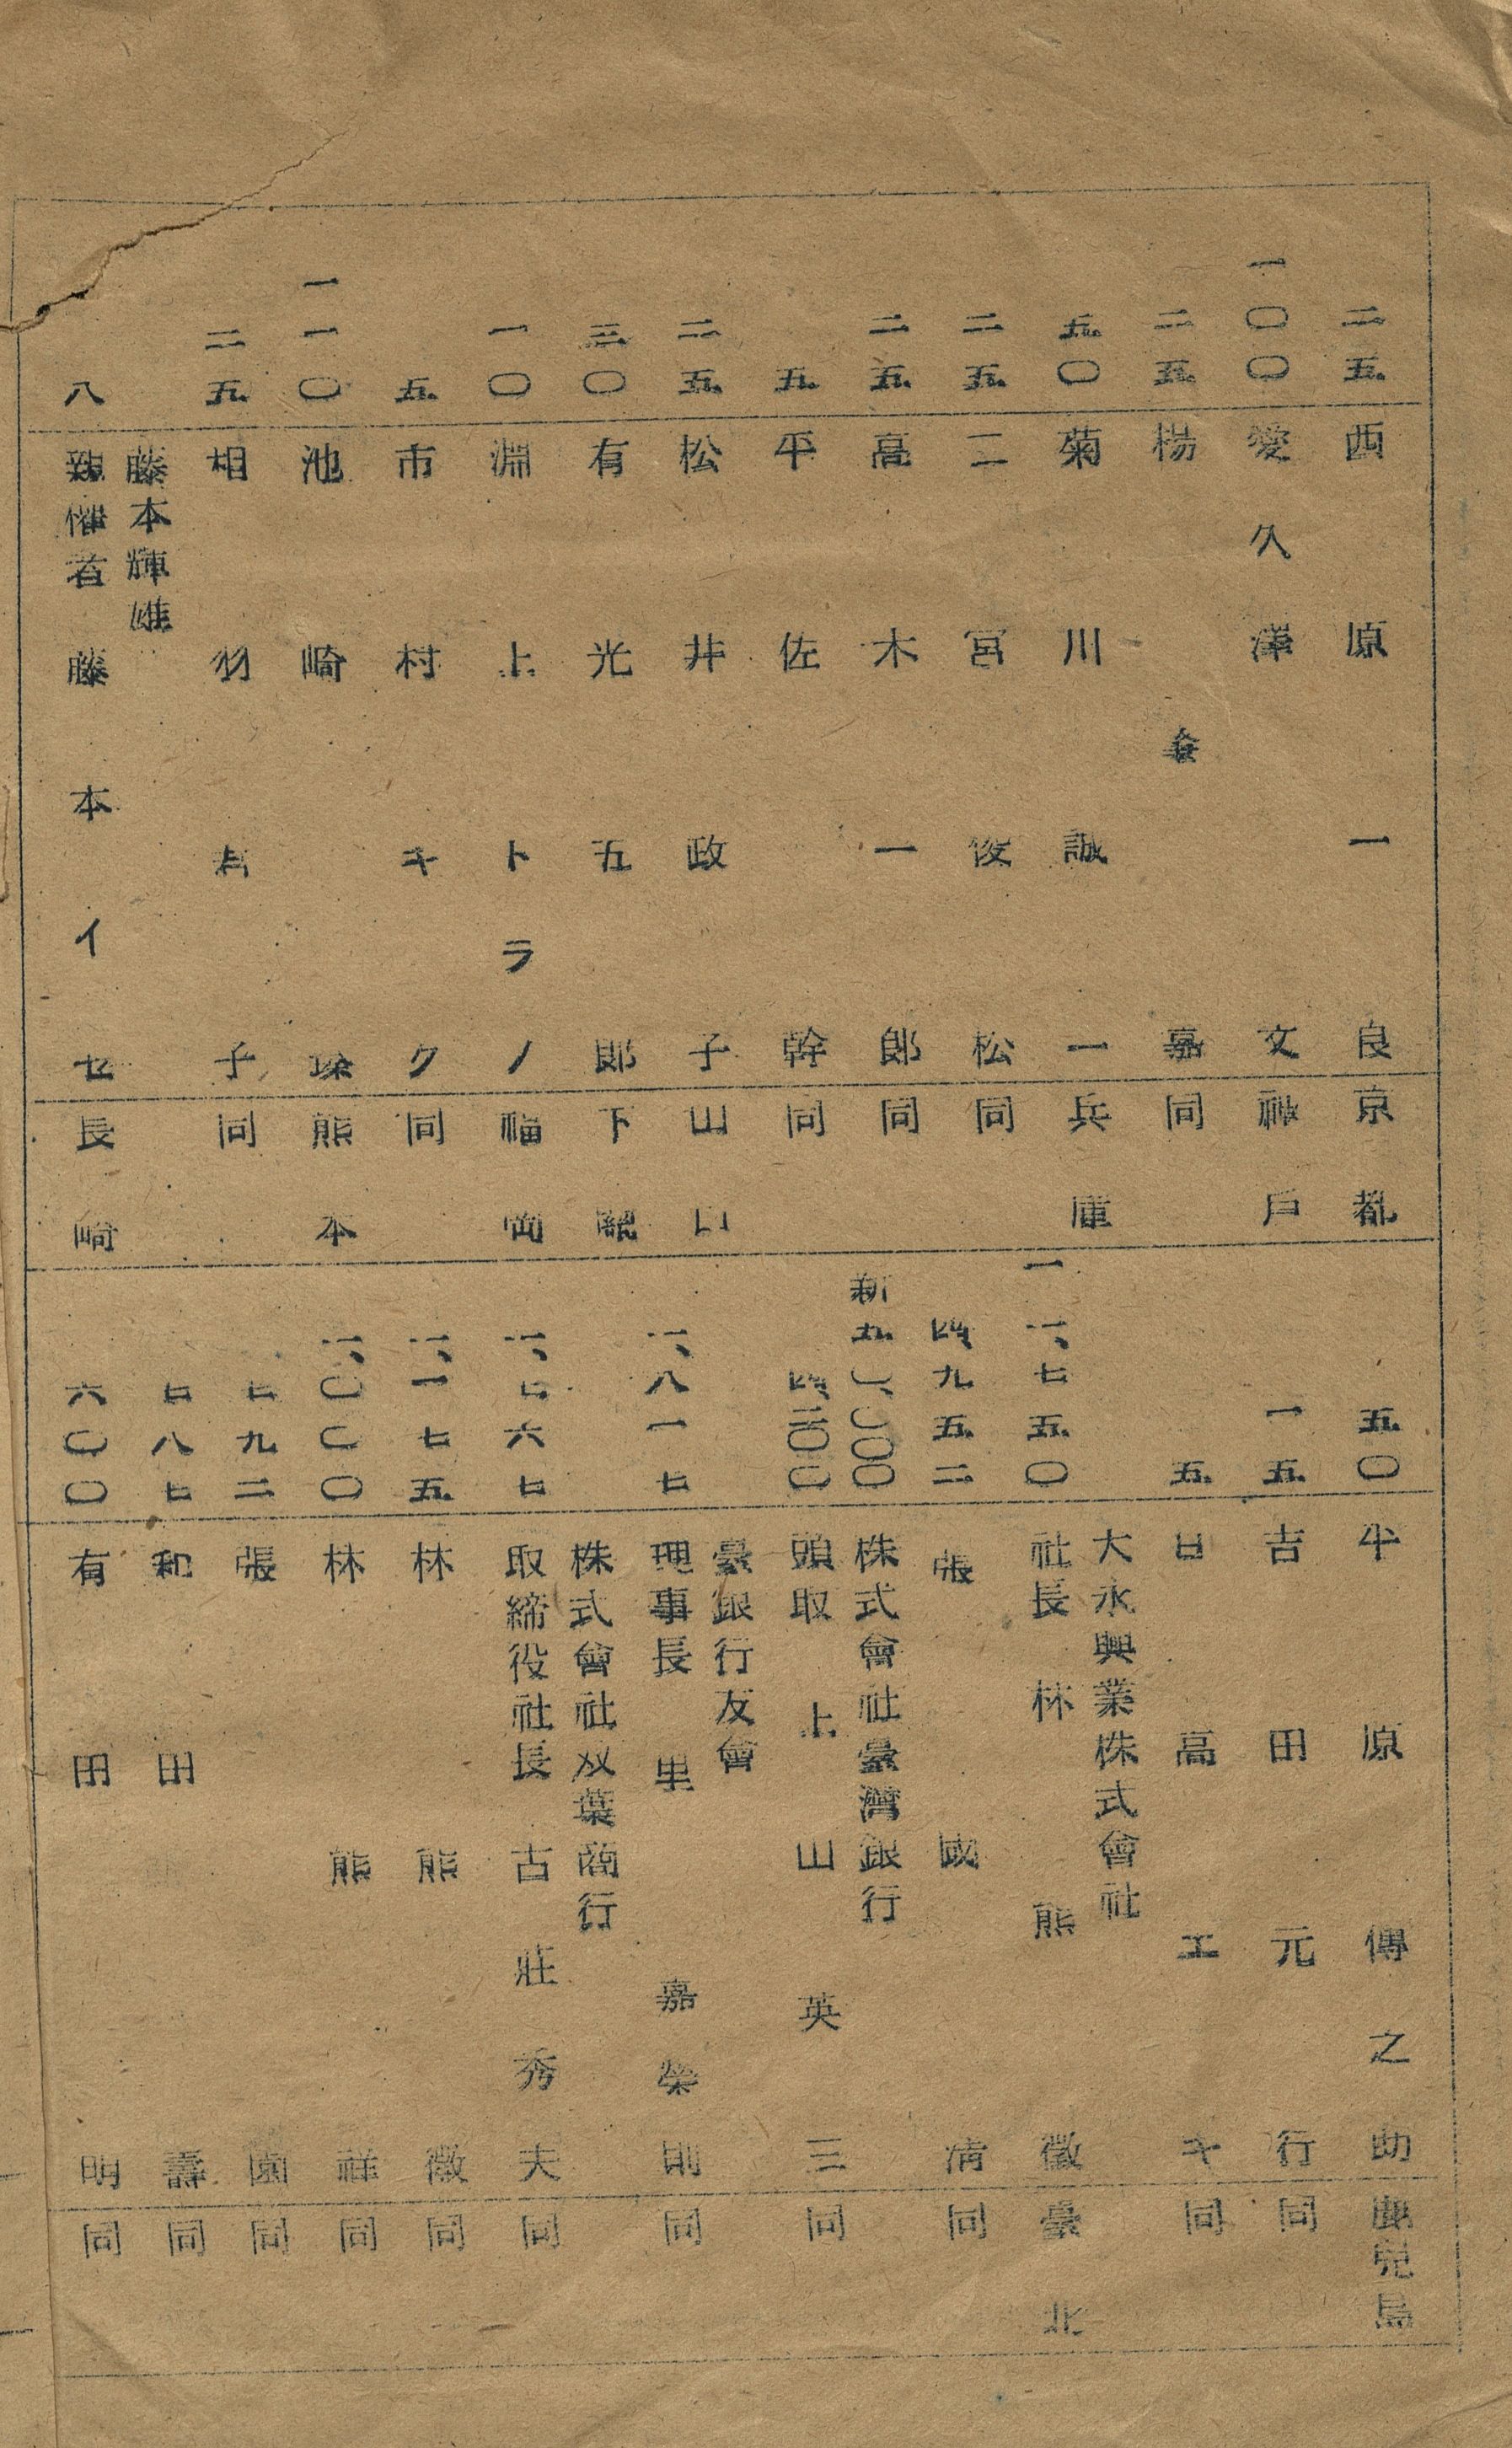 二五 西原一良 京都
一〇〇 愛久澤文 神戶
二五 楊 嘉 同
五〇 菊川誠一 兵庫
二五 二宮俊松 同
二五 高木一郎 同
五 平佐幹 同
二五 松井政子 山口
三〇 有光五郎 下關
一〇 淵上トラノ 福岡
五 市村キク 同
一一〇 池崎 熊本
二五 相羽 子 同
藤本輝雄
八 親權者 藤本イセ 長崎
五〇 平原傳之助 鹿兒島
一五 吉田元行 同
五 日高エキ 同
大永興業株式會社
一一、七五〇 社長 林熊徵 臺北
四、九五二 張國清 同
株式會社臺灣銀行
新九〇、〇〇〇
四、三〇〇 頭取 上山英三 同
臺銀行友會
一、八一七 理事長 里嘉榮則 同
株式會社双葉商行
一、七六七 取締役社長 古莊秀夫 同
一、一七五 林熊徵 同
一、〇〇〇 林熊祥 同
七九二 張園 同
七八七 和田壽 同
六〇〇 有田明 同